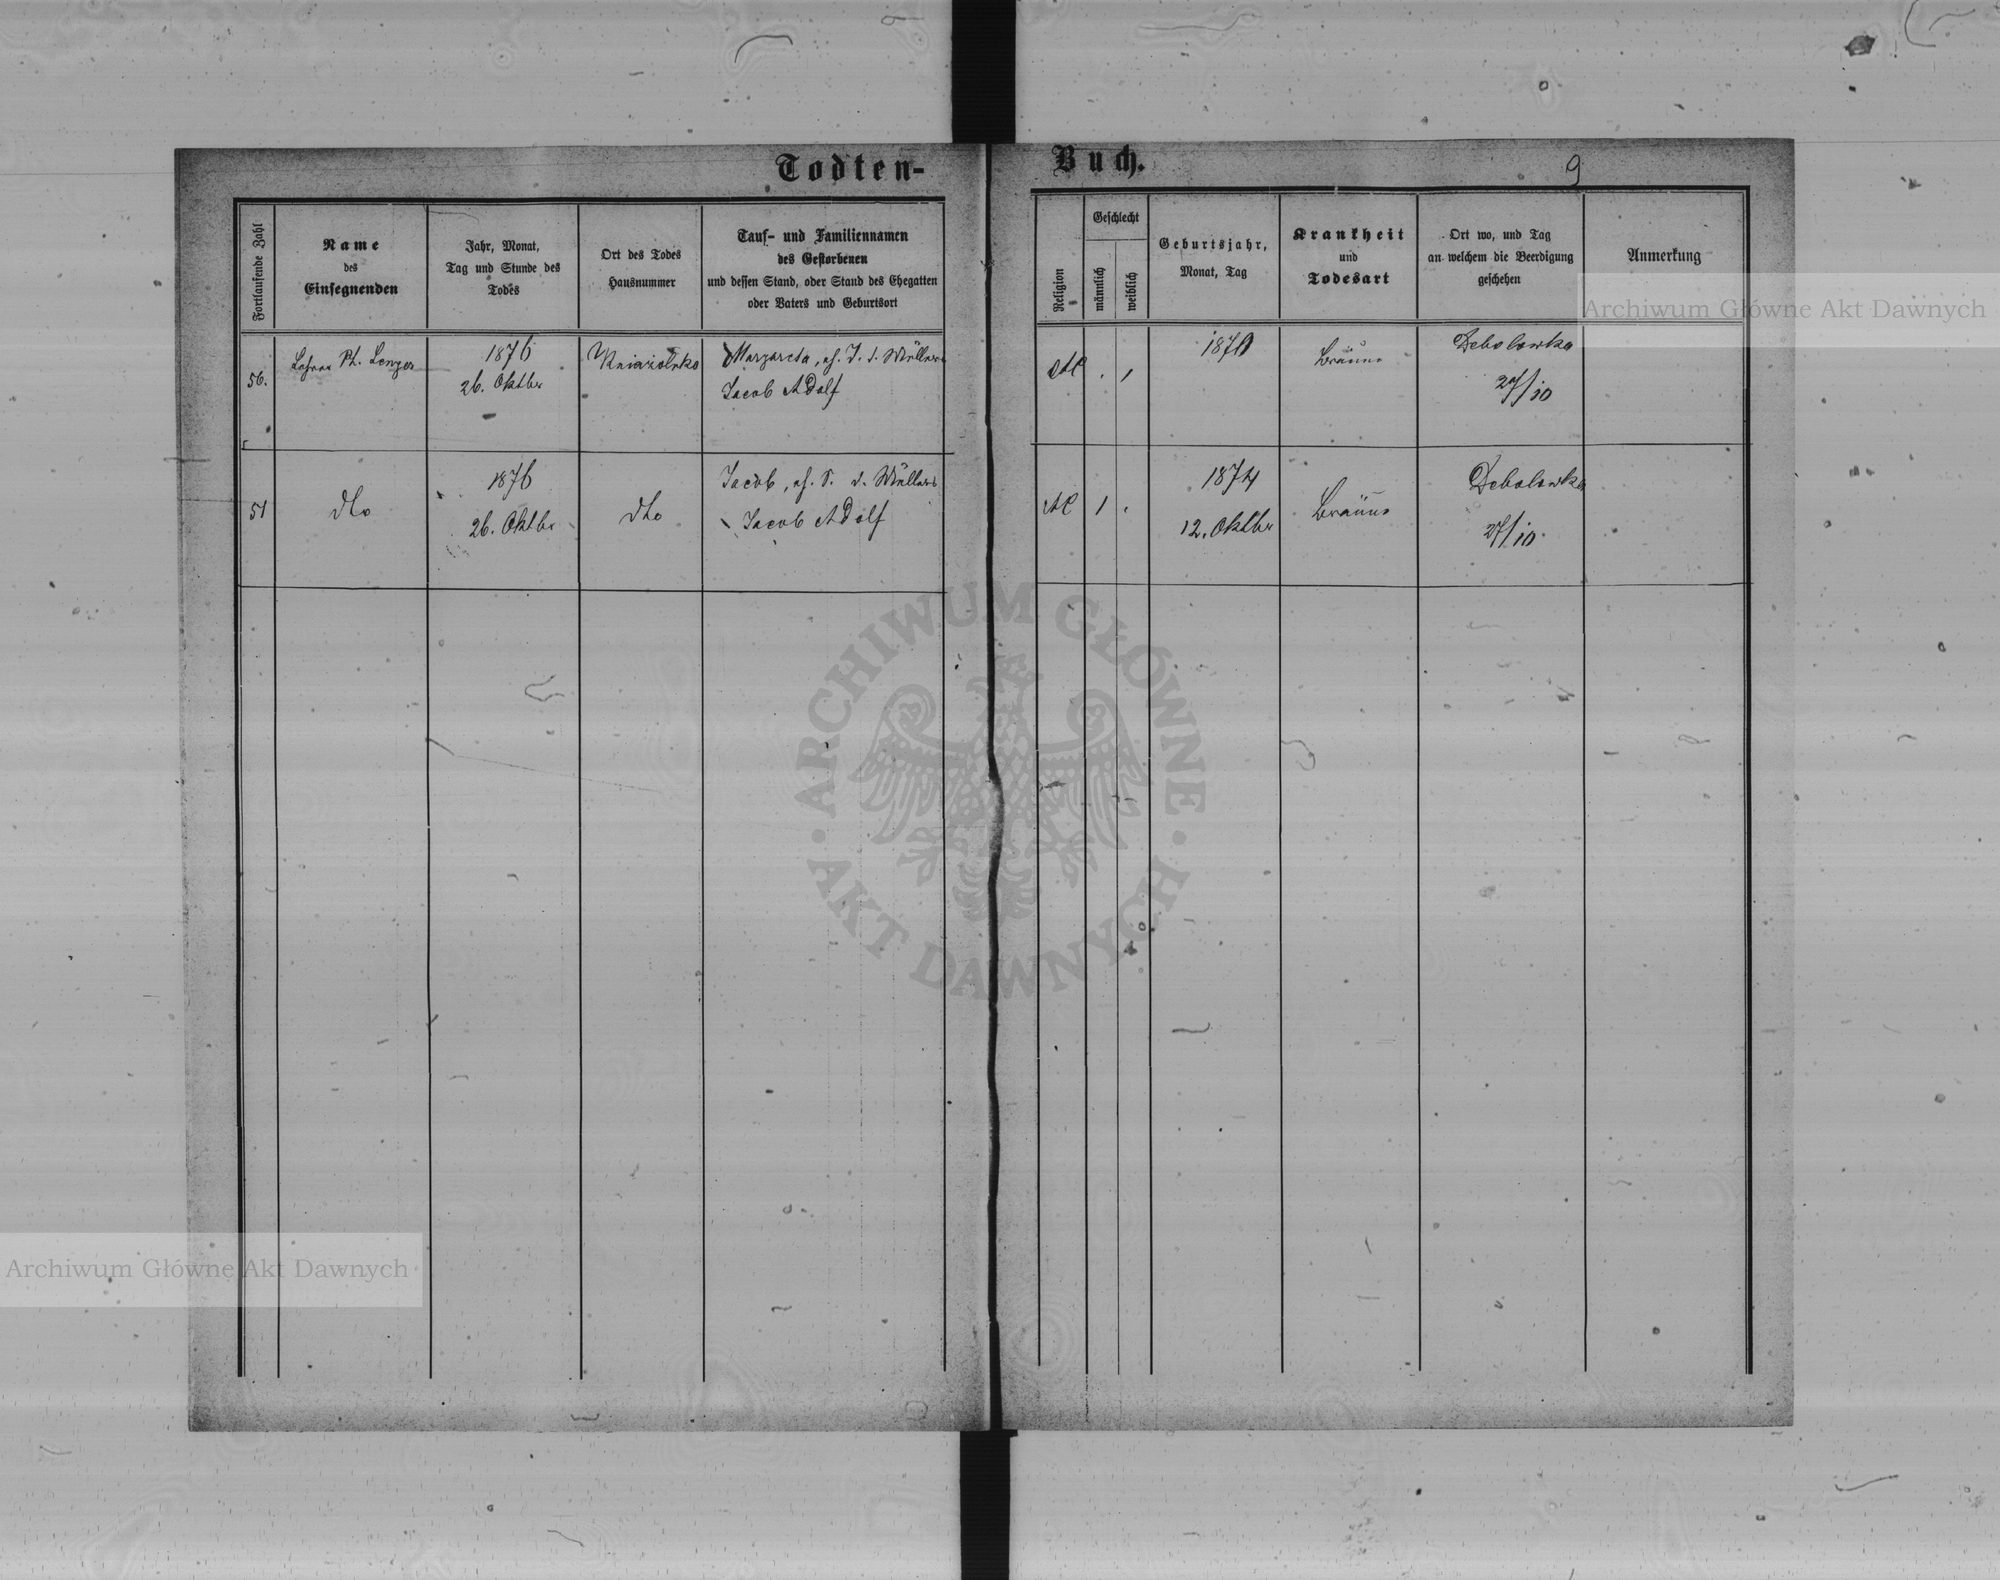 Todten-
Buch.
9
Fortlaufende Zahl
Name
des
Einsegnenden
Jahr, Monat,
Tag und Stunde des
Todes
Ort des Todes
Hausnummer
Tauf- und Familiennamen
des Gestorbenen
und dessen Stand, oder Stand des Ehegatten
oder Vaters und Geburtsort
Religion
Geschlecht
männlich
weiblich
Geburtsjahr,
Monat, Tag
Krankheit
und
Todesart
Ort wo, und Tag
an welchem die Beerdigung
geschehen
Anmerkung
56.
Ph. Lenzer
1876
26. Oktbr
Margareta, eh. T. d. Müllers
Jacob Adolf
AC
187
Bräune
Debolowka
27/10
51
dto
1876
26. Oktbr
dto
Jacob, eh. S. d. Müllers
Jacob Adolf
AC 1
1874
12. Oktbr
Bräune
Debolowka
27/10.
Archiwum Główne Akt Dawnych
ARCHIWUM GŁÓWNE · AKT DAWNYCH ·
Archiwum Główne Akt Dawnych